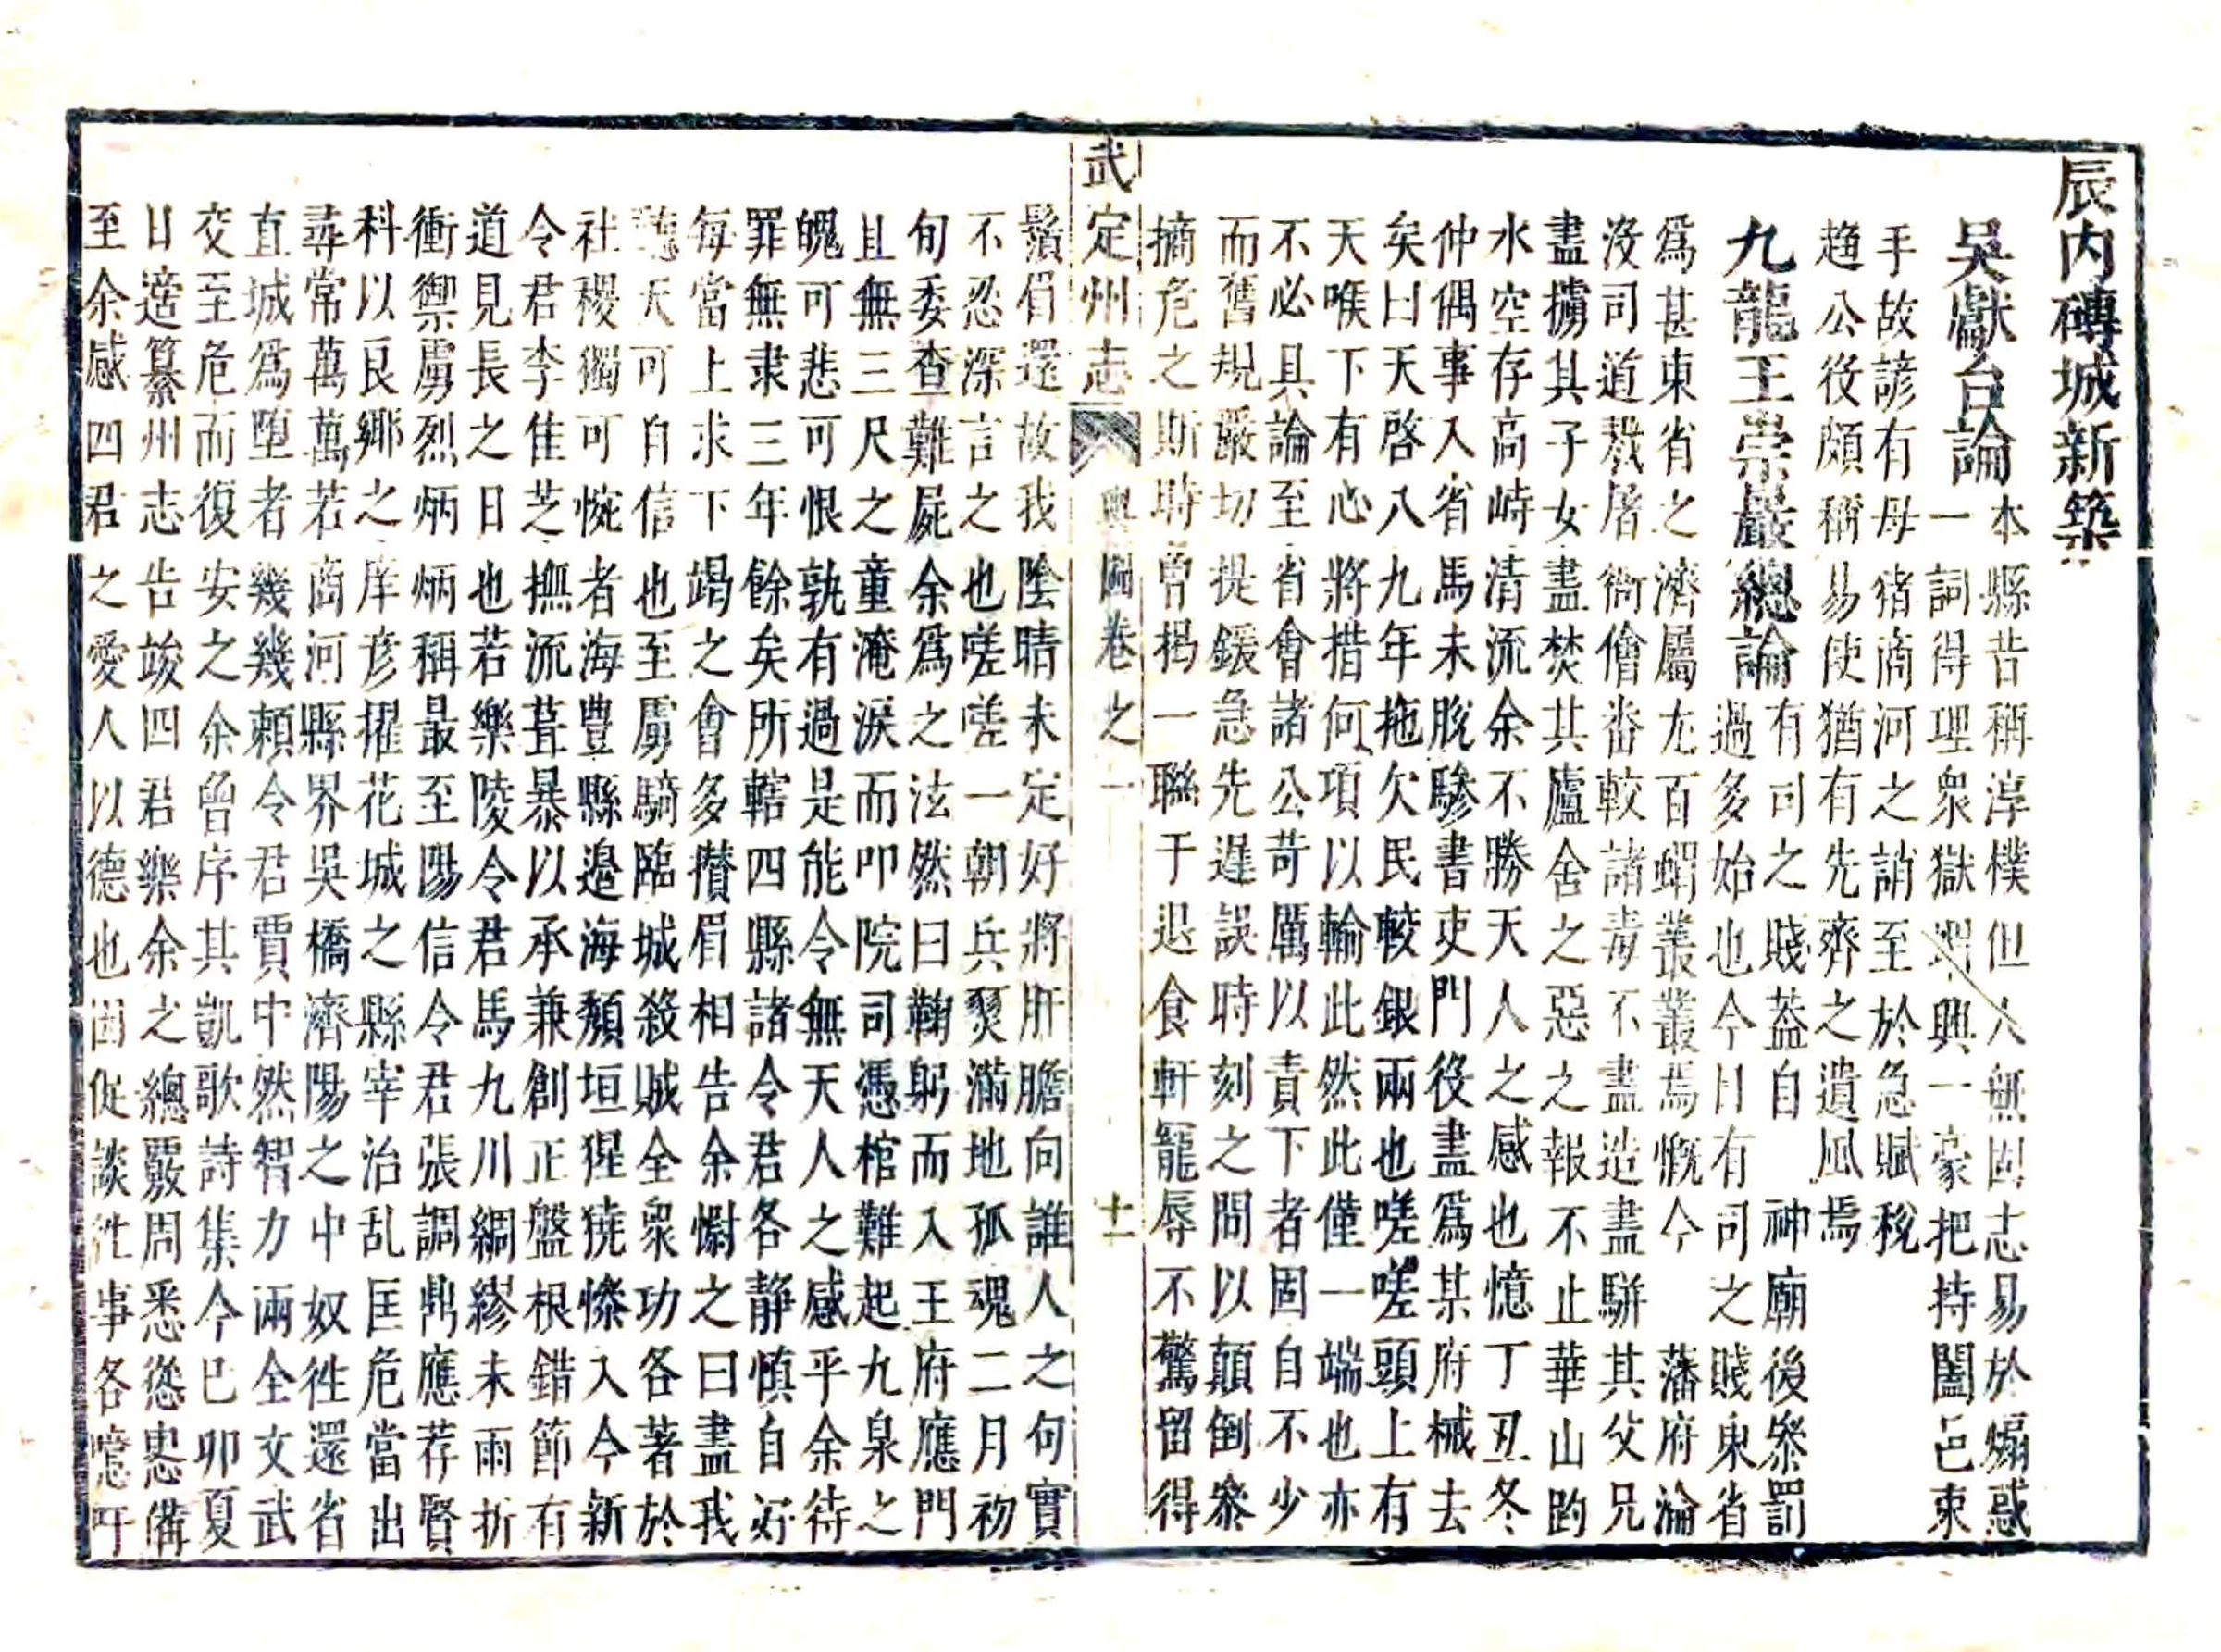 辰内磚城新築
吳獻台論
本縣昔稱淳樸但人無固志易於煽惑
一詞得理衆獄興一豪把持闔邑束
手故諺有母猪商河之誚至於急賦稅
趨公役頗稱易使猶有先齊之遺風焉
九龍王崇嚴總論
有司之賤葢自 神廟後叅罰
過多始也今日有司之賤東省
爲甚東省之濟屬尤百蝟叢叢焉慨今 藩府淪
沒司道戮屠衙僧畨較諸毒不盡造盡駢其父兄
盡擄其子女盡焚其廬舍之惡之報不止華山趵
水空存高峙清流余不勝天人之感也憶丁丑冬
仲偶事入省馬未脫驂書吏門役盡爲某府械去
矣曰天啓八九年拖欠民較銀兩也嗟嗟頭上有
天喉下有心將措何項以輸此然此僅一端也亦
不必具論至省會諸公苛厲以責下者固自不少
而舊規嚴切提鍰急先遲誤時刻之間以顛倒叅
摘危之斯時曾揭一聯于退食軒寵辱不驚留得
武定州志 輿圖卷之一 十二
鬚眉還故我陰晴未定好將肝膽向誰人之句實
不忍深言之也嗟嗟一朝兵燹滿地孤魂二月初
旬委查難屍余爲之泫然曰鞠躬而入王府應門
且無三尺之童淹淚而叩院司憑棺難起九泉之
魄可悲可恨孰有過是能令無天人之感乎余待
罪無隶三年餘矣所轄四縣諸令君各静慎自好
每當上求下竭之會多攢眉相告余慰之曰盡我
聽天可自信也至虜騎臨城殺賊全衆功各著於
社稷獨可惋者海豐縣邉海頽垣猩獟慘入今新
令君李佳芝撫流葺暴以承兼創正盤根錯節有
道見長之日也若樂陵令君馬九川綢繆未雨折
衝禦虜烈炳炳稱最至陽信令君張調鼎應荐賢
科以良鄉之庠彦擢花城之縣宰治乱匡危當出
尋常萬萬若商河縣界吳橋濟陽之中奴徃還省
直城爲墮者幾幾頼令君賈中然智力兩全文武
交至危而復安之余曾序其凱歌詩集今巳卯夏
日適纂州志告竣四君樂余之總覈周悉慫恿備
至余感四君之愛人以德也固促談徃事各噫吁